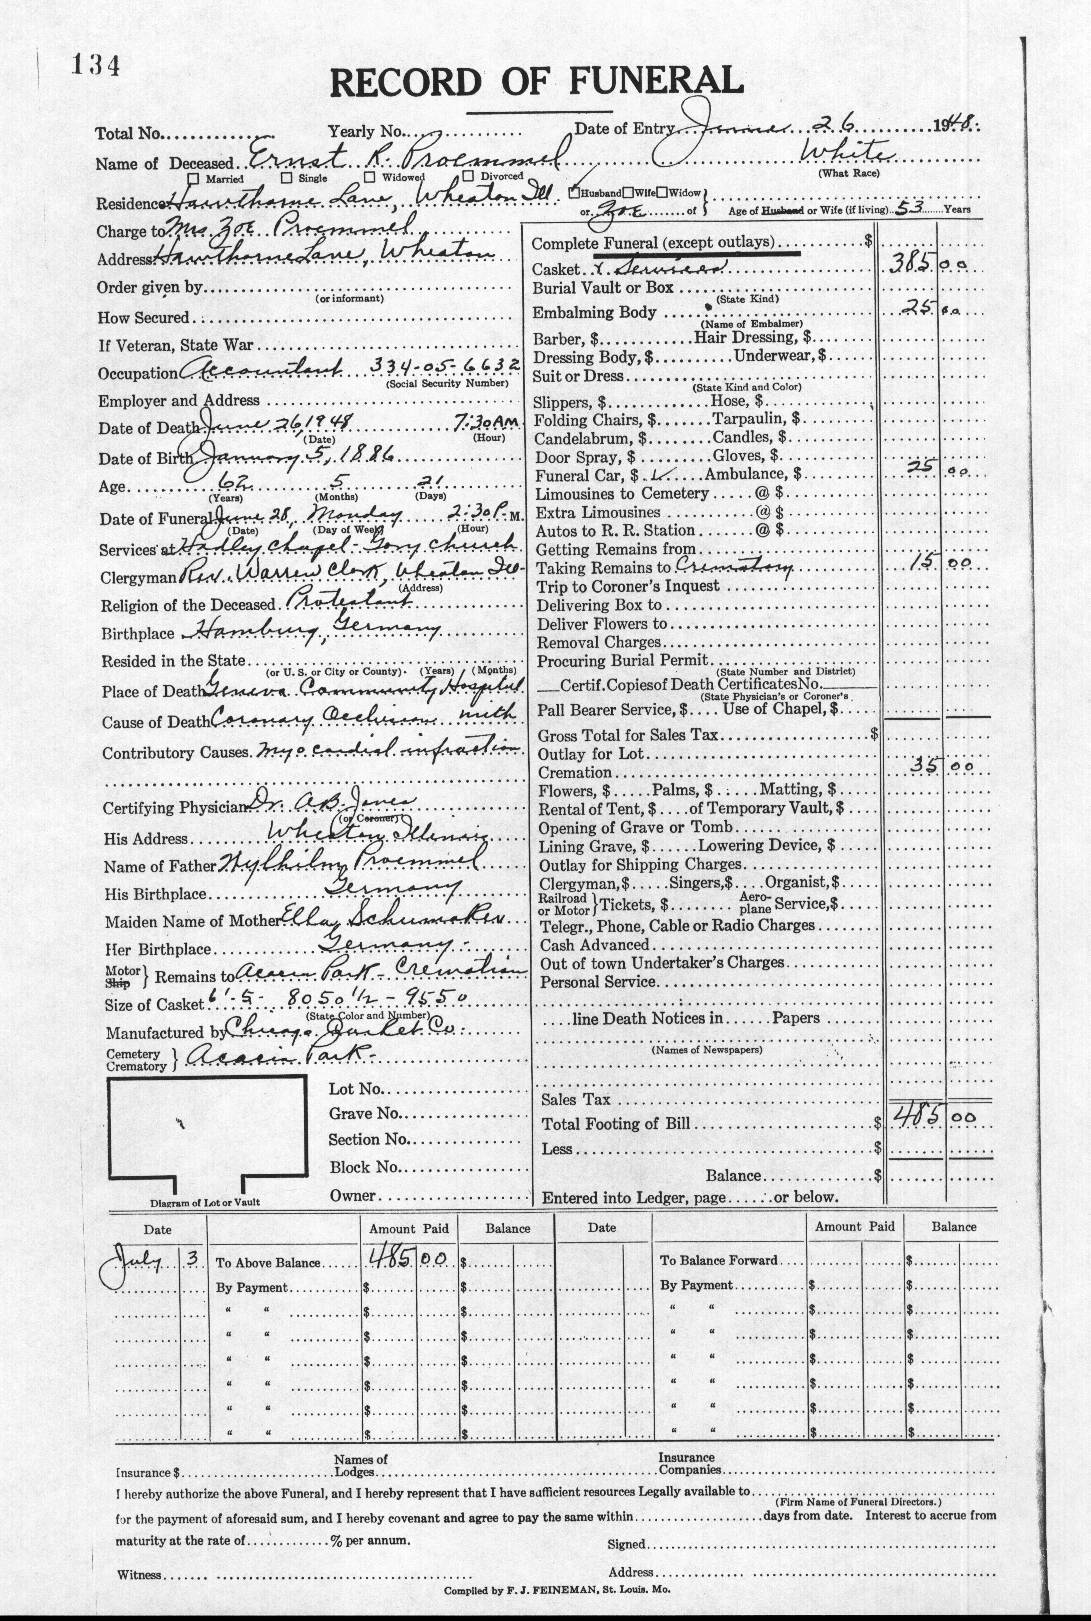 134
RECORD OF FUNERAL
Total No. Yearly No. Date of Entry June 26 1948.
Name of Deceased Ernst R. Proemmel White
Married Single Widowed Divorced (What Race)
Residence Hawthorne Lane, Wheaton Ill. Husband Wife Widow
or Zoe of Age of Husband or Wife (if living) 53 Years
Charge to Mrs Zoe Proemmel
Address Hawthorne Lane, Wheaton
Order given by
(or informant)
How Secured
If Veteran, State War
Occupation Accountant 334-05-6632
(Social Security Number)
Employer and Address
Date of Death June 26, 1948 7:30 AM
(Date) (Hour)
Date of Birth January 5, 1886
Age 62 5 21
(Years) (Months) (Days)
Date of Funeral June 28, Monday 2:30 P. M.
(Date) (Day of Week) (Hour)
Services at Hadley Chapel - Gary Church
Clergyman Rev. Warren Clark, Wheaton Ill-
(Address)
Religion of the Deceased Protestant
Birthplace Hamburg, Germany
Resided in the State
(or U. S. or City or County). (Years) (Months)
Place of Death Geneva Community Hospital
Cause of Death Coronary Occlusion with
Contributory Causes. myocardial infraction
Certifying Physician Dr. A.B. Jones
(or Coroner)
His Address Wheaton, Illinois
Name of Father Wylhilm Proemmel
His Birthplace Germany
Maiden Name of Mother Ella Schumaker
Her Birthplace Germany -
Motor Ship } Remains to Acacia Park - Cremation
Size of Casket 6'-5- 8050 1/2 - 9550
(State Color and Number)
Manufactured by Chicago Casket Co.
Cemetery Crematory } Acacia Park -
Lot No.
Grave No.
Section No.
Block No.
Owner
Diagram of Lot or Vault
Complete Funeral (except outlays) $
Casket & Services 385 00
Burial Vault or Box
(State Kind)
Embalming Body 25 00
(Name of Embalmer)
Barber, $ Hair Dressing, $
Dressing Body, $ Underwear, $
Suit or Dress
(State Kind and Color)
Slippers, $ Hose, $
Folding Chairs, $ Tarpaulin, $
Candelabrum, $ Candles, $
Door Spray, $ Gloves, $
Funeral Car, $ ✓ Ambulance, $ 25 00
Limousines to Cemetery @ $
Extra Limousines @ $
Autos to R. R. Station @ $
Getting Remains from
Taking Remains to Crematory 15 00
Trip to Coroner's Inquest
Delivering Box to
Deliver Flowers to
Removal Charges
Procuring Burial Permit
(State Number and District)
Certif. Copies of Death Certificates No.
(State Physician's or Coroner's
Pall Bearer Service, $ Use of Chapel, $
Gross Total for Sales Tax $
Outlay for Lot
Cremation 35 00
Flowers, $ Palms, $ Matting, $
Rental of Tent, $ of Temporary Vault, $
Opening of Grave or Tomb
Lining Grave, $ Lowering Device, $
Outlay for Shipping Charges
Clergyman, $ Singers, $ Organist, $
Railroad or Motor } Tickets, $ Aeroplane Service, $
Telegr., Phone, Cable or Radio Charges
Cash Advanced
Out of town Undertaker's Charges
Personal Service
line Death Notices in Papers
(Names of Newspapers)
Sales Tax
Total Footing of Bill $ 485 00
Less $
Balance $
Entered into Ledger, page or below.
Date Amount Paid Balance Date Amount Paid Balance
July 3 To Above Balance 485 00 $ To Balance Forward $
By Payment $ $ By Payment $ $
" " $ $ " " $ $
" " $ $ " " $ $
" " $ $ " " $ $
" " $ $ " " $ $
" " $ $ " " $ $
" " $ $ " " $ $
Insurance $ Names of Lodges Insurance Companies
I hereby authorize the above Funeral, and I hereby represent that I have sufficient resources Legally available to
(Firm Name of Funeral Directors.)
for the payment of aforesaid sum, and I hereby covenant and agree to pay the same within days from date. Interest to accrue from
maturity at the rate of % per annum. Signed
Witness Address
Compiled by F. J. FEINEMAN, St. Louis. Mo.